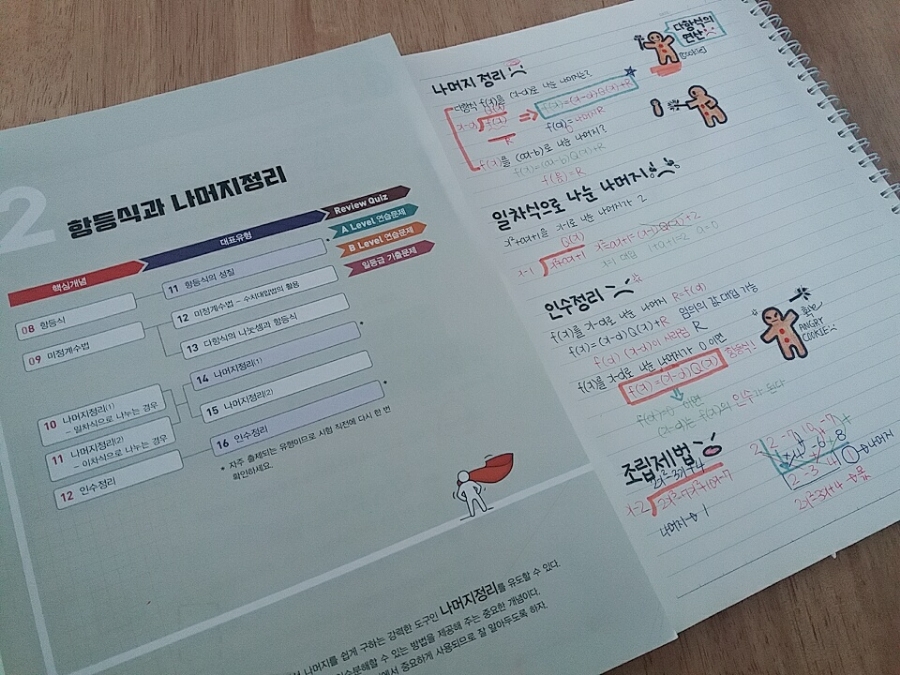 2
항등식과 나머지정리
핵심개념
대표유형
Review Quiz
A Level 연습문제
B Level 연습문제
일등급 기출문제
08 항등식
09 미정계수법
10 나머지정리(1)
- 일차식으로 나누는 경우
11 나머지정리(2)
- 이차식으로 나누는 경우
12 인수정리
11 항등식의 성질
12 미정계수법 - 수치대입법의 활용
13 다항식의 나눗셈과 항등식
14 나머지정리(1)
15 나머지정리(2)
16 인수정리
* 자주 출제되는 유형이므로 시험 직전에 다시 한 번
확인하세요.
나머지를 쉽게 구하는 강력한 도구인 나머지정리를 유도할 수 있다.
인수분해할 수 있는 방법을 제공해 주는 중요한 개념이다.
에서 중요하게 사용되므로 잘 알아두도록 하자.
다항식의
연산!
cookies
나머지 정리
다항식 f(x)를 (x-α)로 나눈 나머지는?
f(x)=(x-α)Q(x)+R
f(α)=나머지R
R
f(x)를 (ax-b)로 나눈 나머지?
f(x)=(ax-b)Q(x)+R
일차식으로 나눈 나머지!
x²+ax+1을 x-1로 나눈 나머지가 2
Q(x)
x-1 x²+ax+1 x²+ax+1=(x-1)Q(x)+2
x=1 대입 1+a+1=2 a=0
인수정리
f(x)를 x-α로 나눈 나머지 R=f(α)
f(x)=(x-α)Q(x)+R 임의의 값 대입 가능
f(α) (x-α)이 사라짐 R
f(x)를 x-α로 나눈 나머지가 0이면
f(x)=(x-α)Q(x) 항등식!
f(α)=0 이면
(x-α)는 f(x)의 인수가 된다
ANGRY
COOKIE
조립제법
2x²-3x+4
x-2 2x³-7x²+10x-7
나머지→ 1
2 2 -7 10 -7
4 -6 8
2 -3 4 1 →나머지
2x²-3x+4 →몫